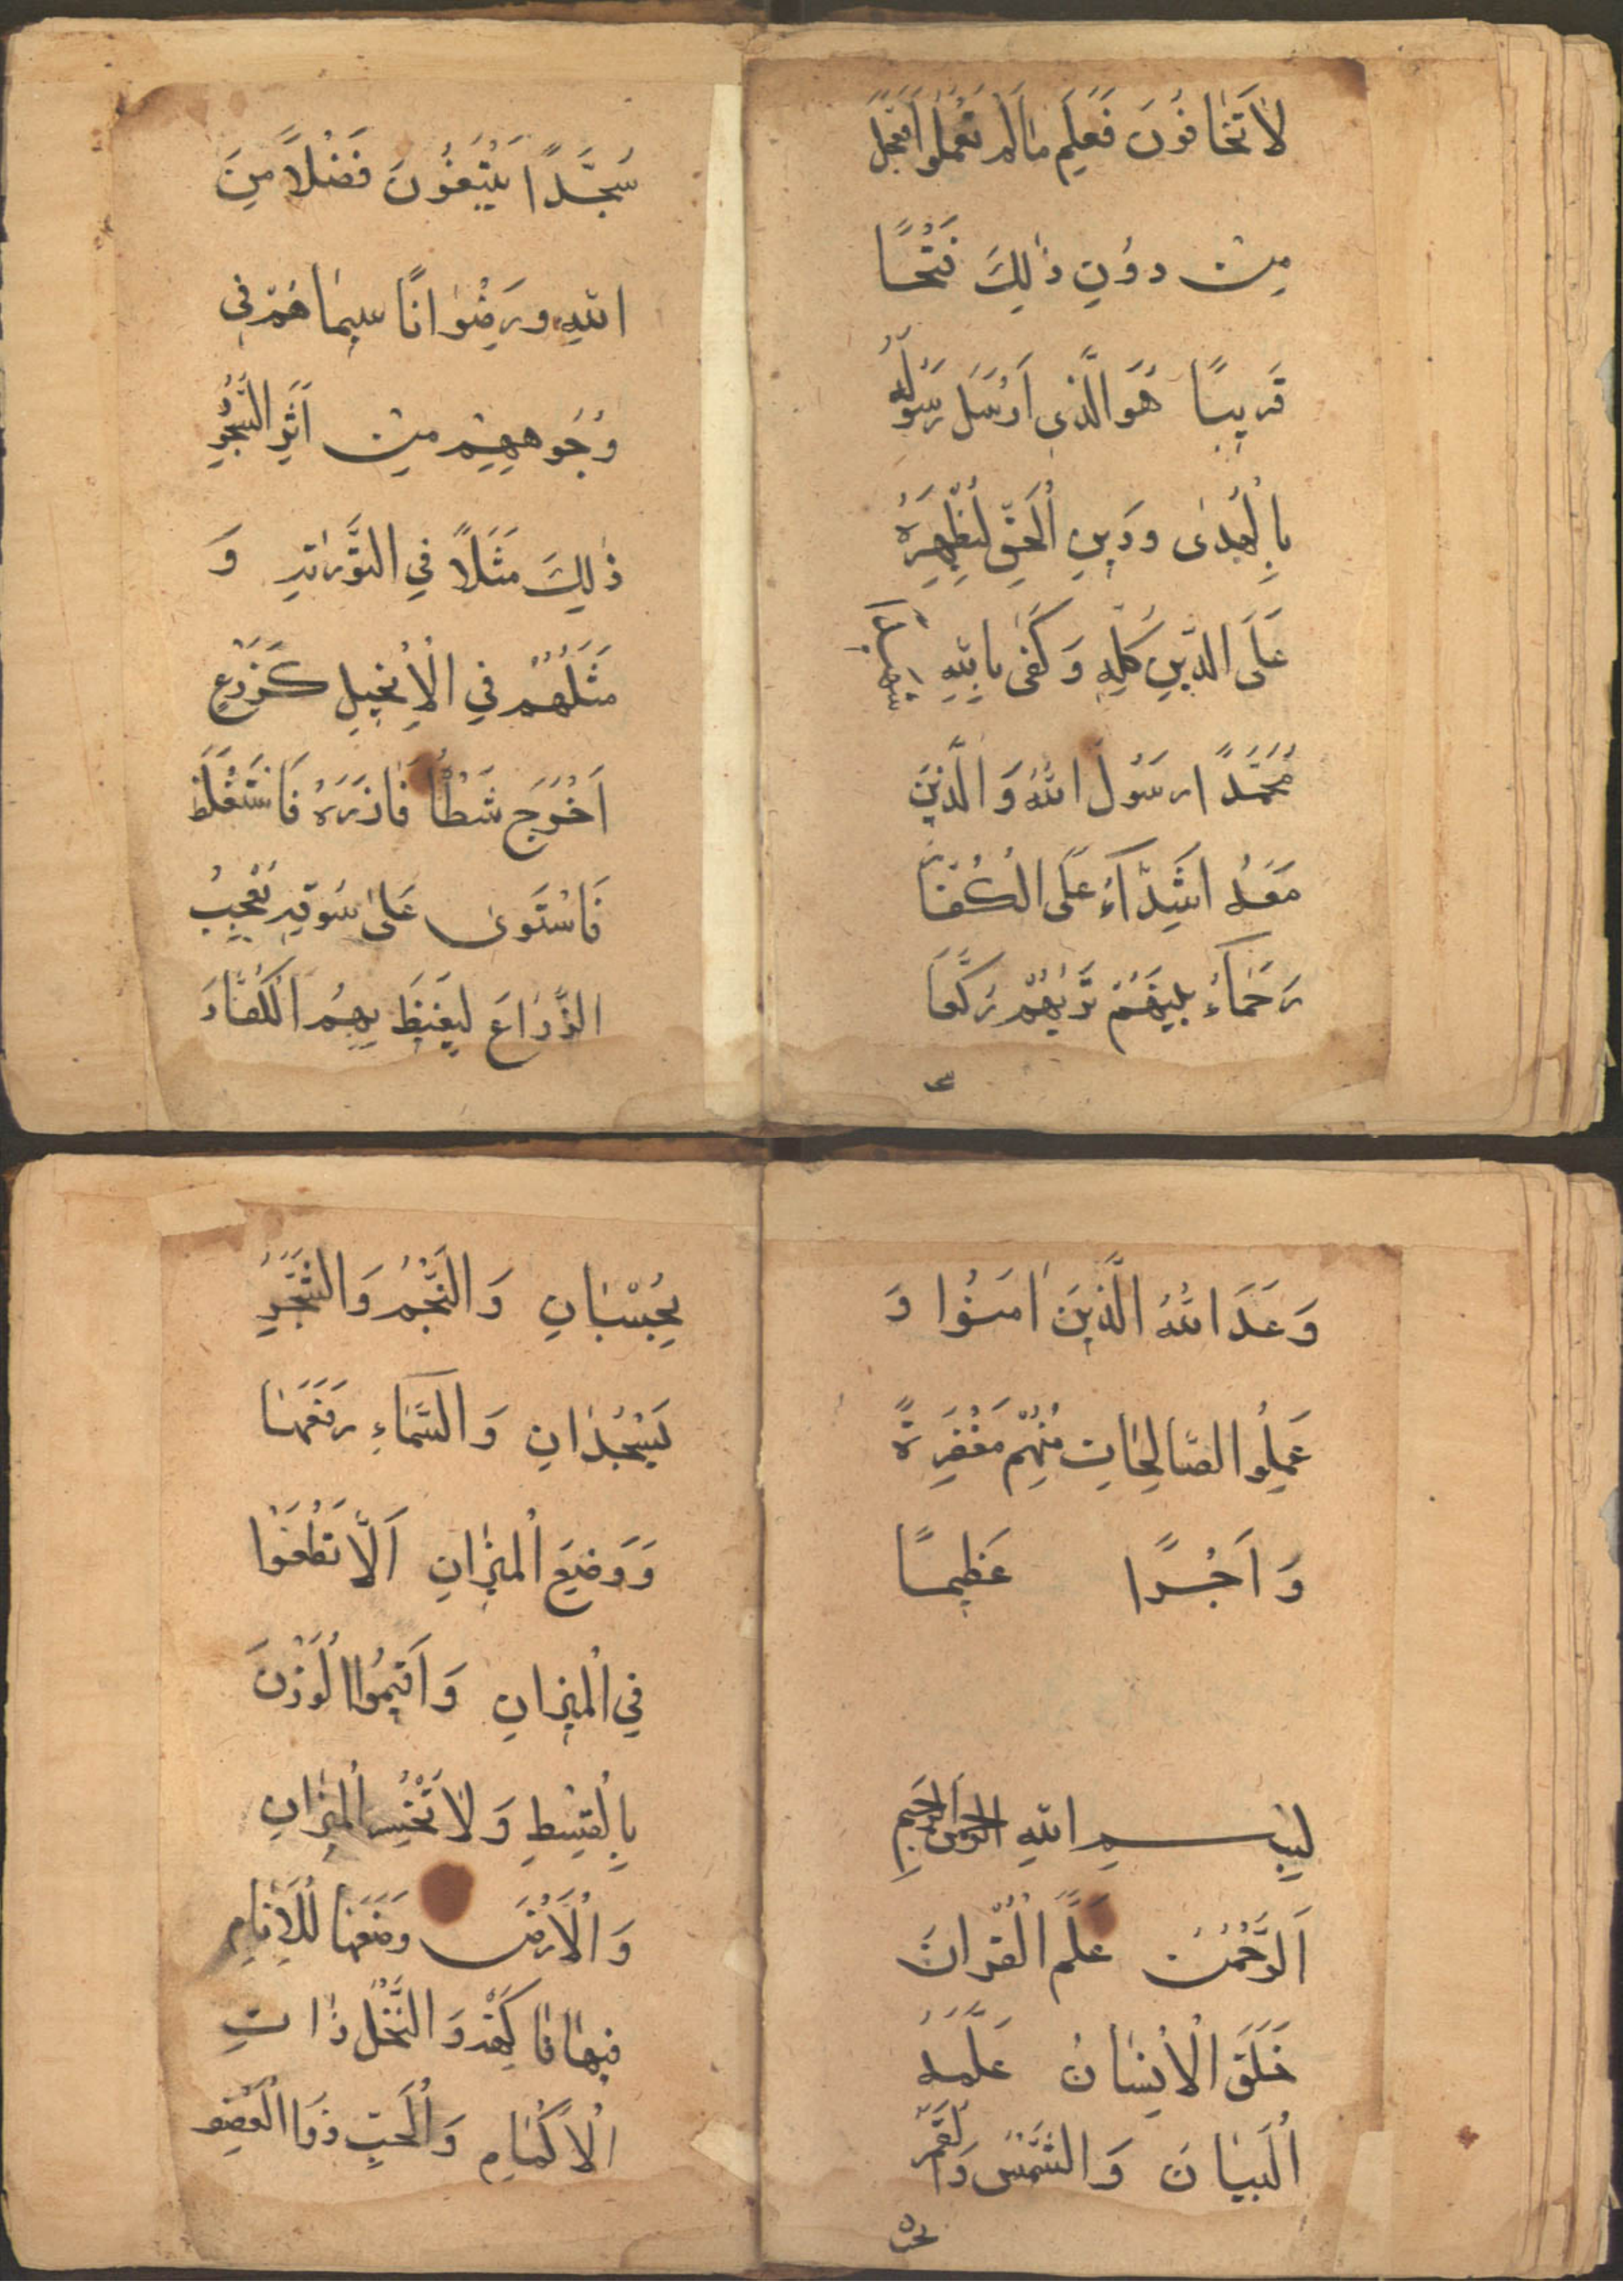 لَا تَخَافُونَ فَعَلِمَ مَا لَمْ تَعْمَلُوا فَجَعَلَ
مِنْ دُونِ ذٰلِكَ فَتْحًا
قَرِيبًا هُوَ الَّذِى اَرْسَلَ رَسُولَهُ
بِالْهُدٰى وَدِينِ الْحَقِّ لِيُظْهِرَهُ
عَلَى الدِّينِ كُلِّهِ وَكَفٰى بِاللّٰهِ شَهِيدًا
مُحَمَّدًا رَسُولُ اللّٰهُ وَالَّذِينَ
مَعَهُ اَشِدَّآءُ عَلَى الْكُفَّارِ
رَحَمَآءُ بَيْنَهُمْ تَرٰيهُمْ رُكَّعًا
سُجَّدًا يَبْتَغُونَ فَضْلًا مِنَ
اللّٰهِ وَرِضْوَانًا سِيمَاهُمْ فِى
وُجُوهِهِمْ مِنْ اَثَرِ السُّجُودِ
ذٰلِكَ مَثَلًا فِي التَّوْرٰيةِ وَ
مَثَلُهُمْ فِي الْاِنْجِيلِ كَزَرْعٍ
اَخْرَجَ شَطْأَ فَاذَرَهُ فَاسْتَغْلَظَ
فَاسْتَوٰى عَلٰى سُوقِهِ يُعْجِبُ
الزُّرَّاعَ لِيَغِيظَ بِهِمُ الْكُفَّارَ
وَعَدَ اللّٰهُ الَّذِينَ اٰمَنُوا وَ
عَمِلُوا الصَّالِحَاتِ مِنْهُمْ مَغْفِرَةً
وَ اَجْرًا عَظِيمًا
بِسْمِ اللّٰهِ الرَّحْمٰنِ الرَّحِيمِ
اَلرَّحْمٰنُ عَلَّمَ الْقُرْاٰنَ
خَلَقَ الْاِنْسَانَ عَلَّمَهُ
الْبَيَانَ وَالشَّمْسُ وَالْقَمَرُ
بحسْ
بِحُسْبَانٍ وَالنَّجْمُ وَالشَّجَرُ
يَسْجُدَانِ وَالسَّمَآءِ رَفَعَهَا
وَوَضِعَ الْمِيزَانِ اَلَّا تَطْغَوْا
فِي الْمِيزَانِ وَاَقِيمُوا الْوَزْنَ
بِالْقِسْطِ وَلَا تُخْسِرُ الْمِيزَانِ
وَالْاَرْضَ وَضَعَهَا لِلْاَنَامِ
فِيهَا فَاكِهَةٌ وَالنَّخْلُ ذَاتِ
الْاَكْمَامِ وَالْحَبِّ ذُو الْعَصْفِ